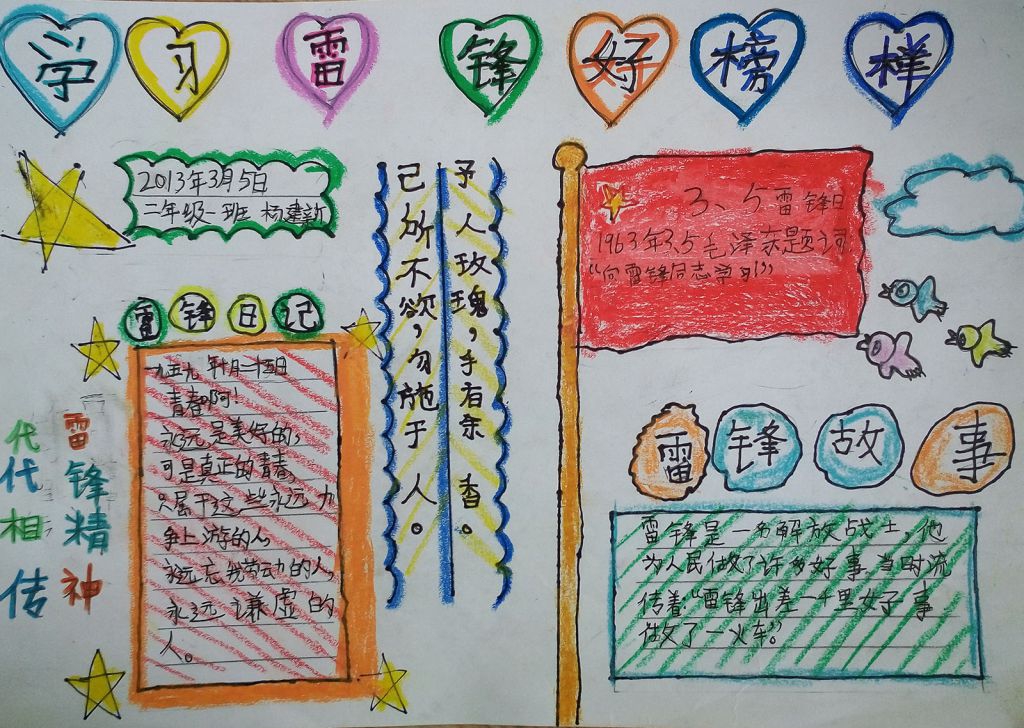 学习雷锋好榜样
2013年3月5日
二年级一班 杨建新
雷锋日记
一九五九年十月二十五日
青春啊!
永远是美好的,
可是真正的青春,
只属于这些永远力
争上游的人,
永远忘我劳动的人,
永远谦虚的
人。
雷锋精神
代代相传
予人玫瑰,手有余香。
己所不欲,勿施于人。
3、5雷锋日
1963年3.5毛泽东题词
“向雷锋同志学习”
雷锋故事
雷锋是一名解放战士,他
为人民做了许多好事当时流
传着“雷锋出差一千里好事
做了一火车”